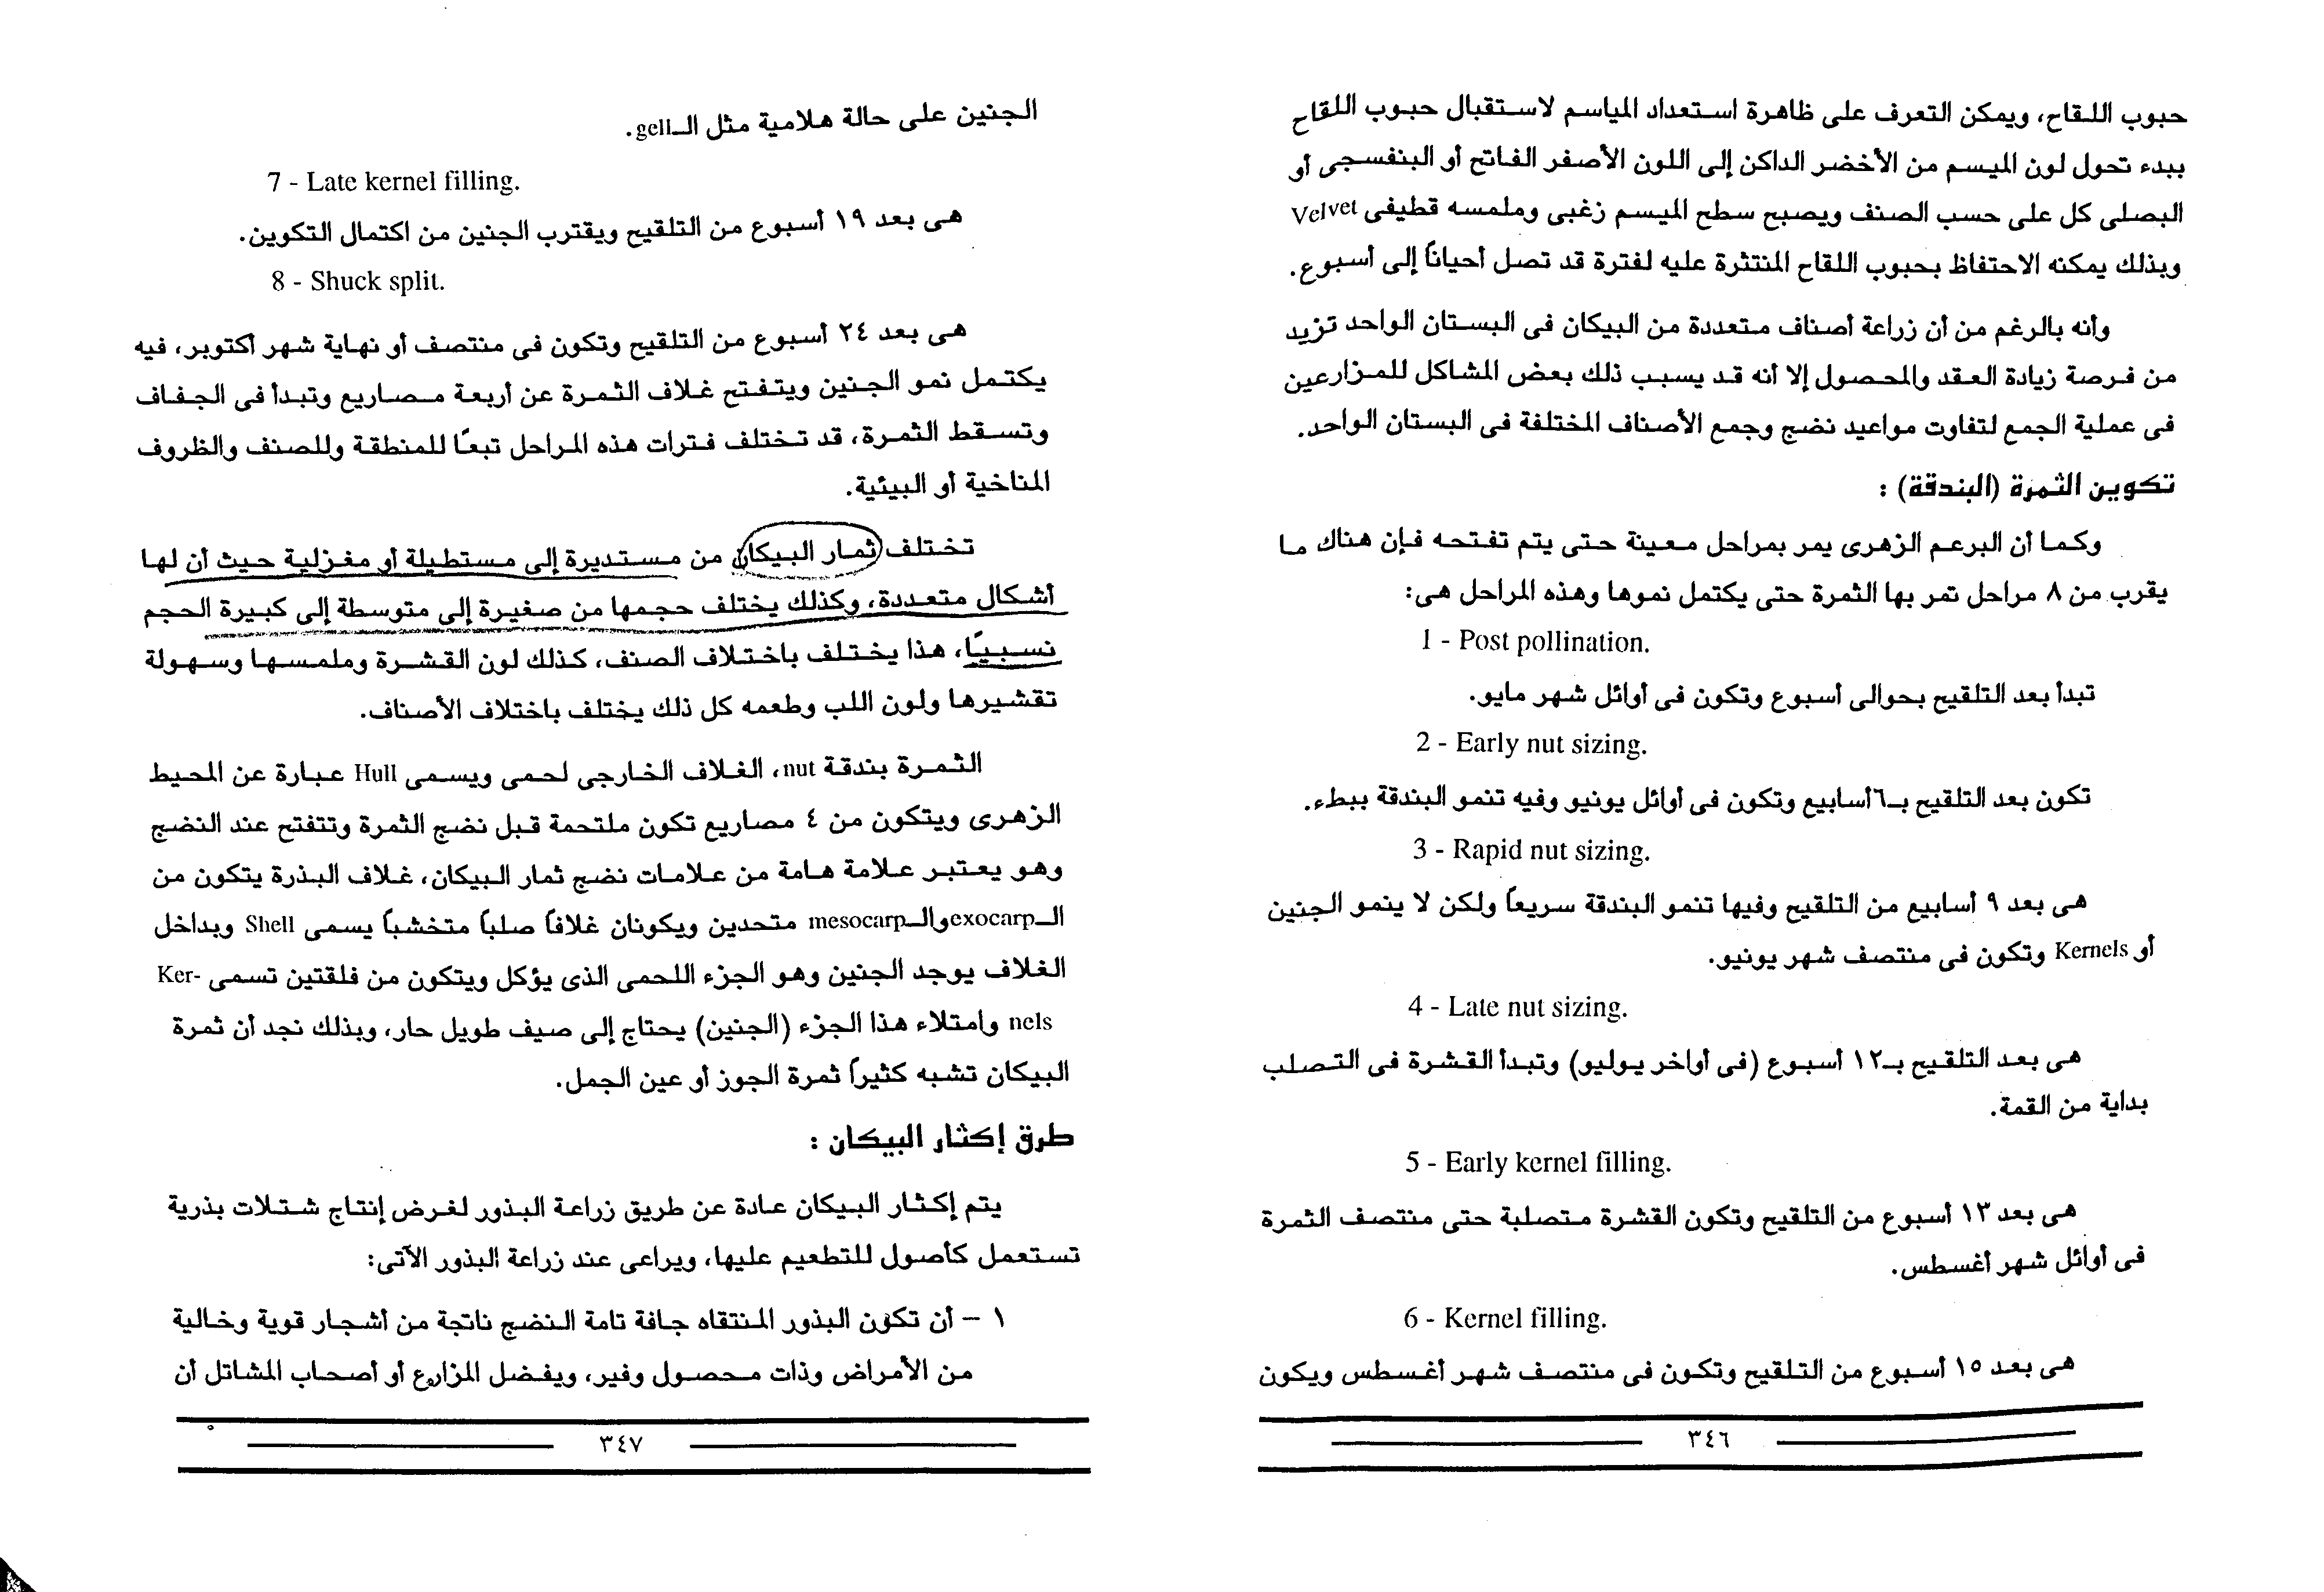 حبوب اللقاح، ويمكن التعرف على ظاهرة استعداد المياسم لاستقبال حبوب اللقاح
ببدء تحول لون الميسم من الأخضر الداكن إلى اللون الأصفر الفاتح أو البنفسجى أو
البصلى كل على حسب الصنف ويصبح سطح الميسم زغبى وملمسه قطيفى Velvet
وبذلك يمكنه الاحتفاظ بحبوب اللقاح المنتثرة عليه لفترة قد تصل أحياناً إلى أسبوع.
وأنه بالرغم من أن زراعة أصناف متعددة من البيكان فى البستان الواحد تزيد
من فرصة زيادة العقد والمحصول إلا أنه قد يسبب ذلك بعض المشاكل للمزارعين
فى عملية الجمع لتفاوت مواعيد نضج وجمع الأصناف المختلفة فى البستان الواحد.
تكوين الثمرة (البندقة) :
وكما أن البرعم الزهرى يمر بمراحل معينة حتى يتم تفتحه فإن هناك ما
يقرب من ٨ مراحل تمر بها الثمرة حتى يكتمل نموها وهذه المراحل هى:
1 - Post pollination.
تبدأ بعد التلقيح بحوالى أسبوع وتكون فى أوائل شهر مايو.
2 - Early nut sizing.
تكون بعد التلقيح بـ٦أسابيع وتكون فى أوائل يونيو وفيه تنمو البندقة ببطء.
3 - Rapid nut sizing.
هى بعد ٩ أسابيع من التلقيح وفيها تنمو البندقة سريعاً ولكن لا ينمو الجنين
أو Kernels وتكون فى منتصف شهر يونيو.
4 - Late nut sizing.
هى بعد التلقيح بـ١٢ أسبوع (فى أواخر يوليو) وتبدأ القشرة فى التصلب
بداية من القمة.
5 - Early kernel filling.
هى بعد ١٣ أسبوع من التلقيح وتكون القشرة متصلبة حتى منتصف الثمرة
فى أوائل شهر أغسطس.
6 - Kernel filling.
هى بعد ١٥ أسبوع من التلقيح وتكون فى منتصف شهر أغسطس ويكون
٣٤٦
الجنين على حالة هلامية مثل الـgell.
7 - Late kernel filling.
هى بعد ١٩ أسبوع من التلقيح ويقترب الجنين من اكتمال التكوين.
8 - Shuck split.
هى بعد ٢٤ أسبوع من التلقيح وتكون فى منتصف أو نهاية شهر أكتوبر، فيه
يكتمل نمو الجنين ويتفتح غلاف الثمرة عن أربعة مصاريع وتبدأ فى الجفاف
وتسقط الثمرة، قد تختلف فترات هذه المراحل تبعًا للمنطقة وللصنف والظروف
المناخية أو البيئية.
تختلف ثمار البيكان من مستديرة إلى مستطيلة أو مغزلية حيث أن لها
أشكال متعددة، وكذلك يختلف حجمها من صغيرة إلى متوسطة إلى كبيرة الحجم
نسبيًا، هذا يختلف باختلاف الصنف، كذلك لون القشرة وملمسها وسهولة
تقشيرها ولون اللب وطعمه كل ذلك يختلف باختلاف الأصناف.
الثمرة بندقة nut، الغلاف الخارجى لحمى ويسمى Hull عبارة عن المحيط
الزهرى ويتكون من ٤ مصاريع تكون ملتحمة قبل نضج الثمرة وتتفتح عند النضج
وهو يعتبر علامة هامة من علامات نضج ثمار البيكان، غلاف البذرة يتكون من
الـexocarp والـmesocarp متحدين ويكونان غلافاً صلباً متخشباً يسمى Shell وبداخل
الغلاف يوجد الجنين وهو الجزء اللحمى الذى يؤكل ويتكون من فلقتين تسمى Ker-
nels وامتلاء هذا الجزء (الجنين) يحتاج إلى صيف طويل حار، وبذلك نجد أن ثمرة
البيكان تشبه كثيراً ثمرة الجوز أو عين الجمل.
طرق إكثار البيكان :
يتم إكثار البيكان عادة عن طريق زراعة البذور لغرض إنتاج شتلات بذرية
تستعمل كأصول للتطعيم عليها، ويراعى عند زراعة البذور الآتى:
١ – أن تكون البذور المنتقاه جافة تامة النضج ناتجة من أشجار قوية وخالية
من الأمراض وذات محصول وفير، ويفضل المزارع أو أصحاب المشاتل أن
٣٤٧